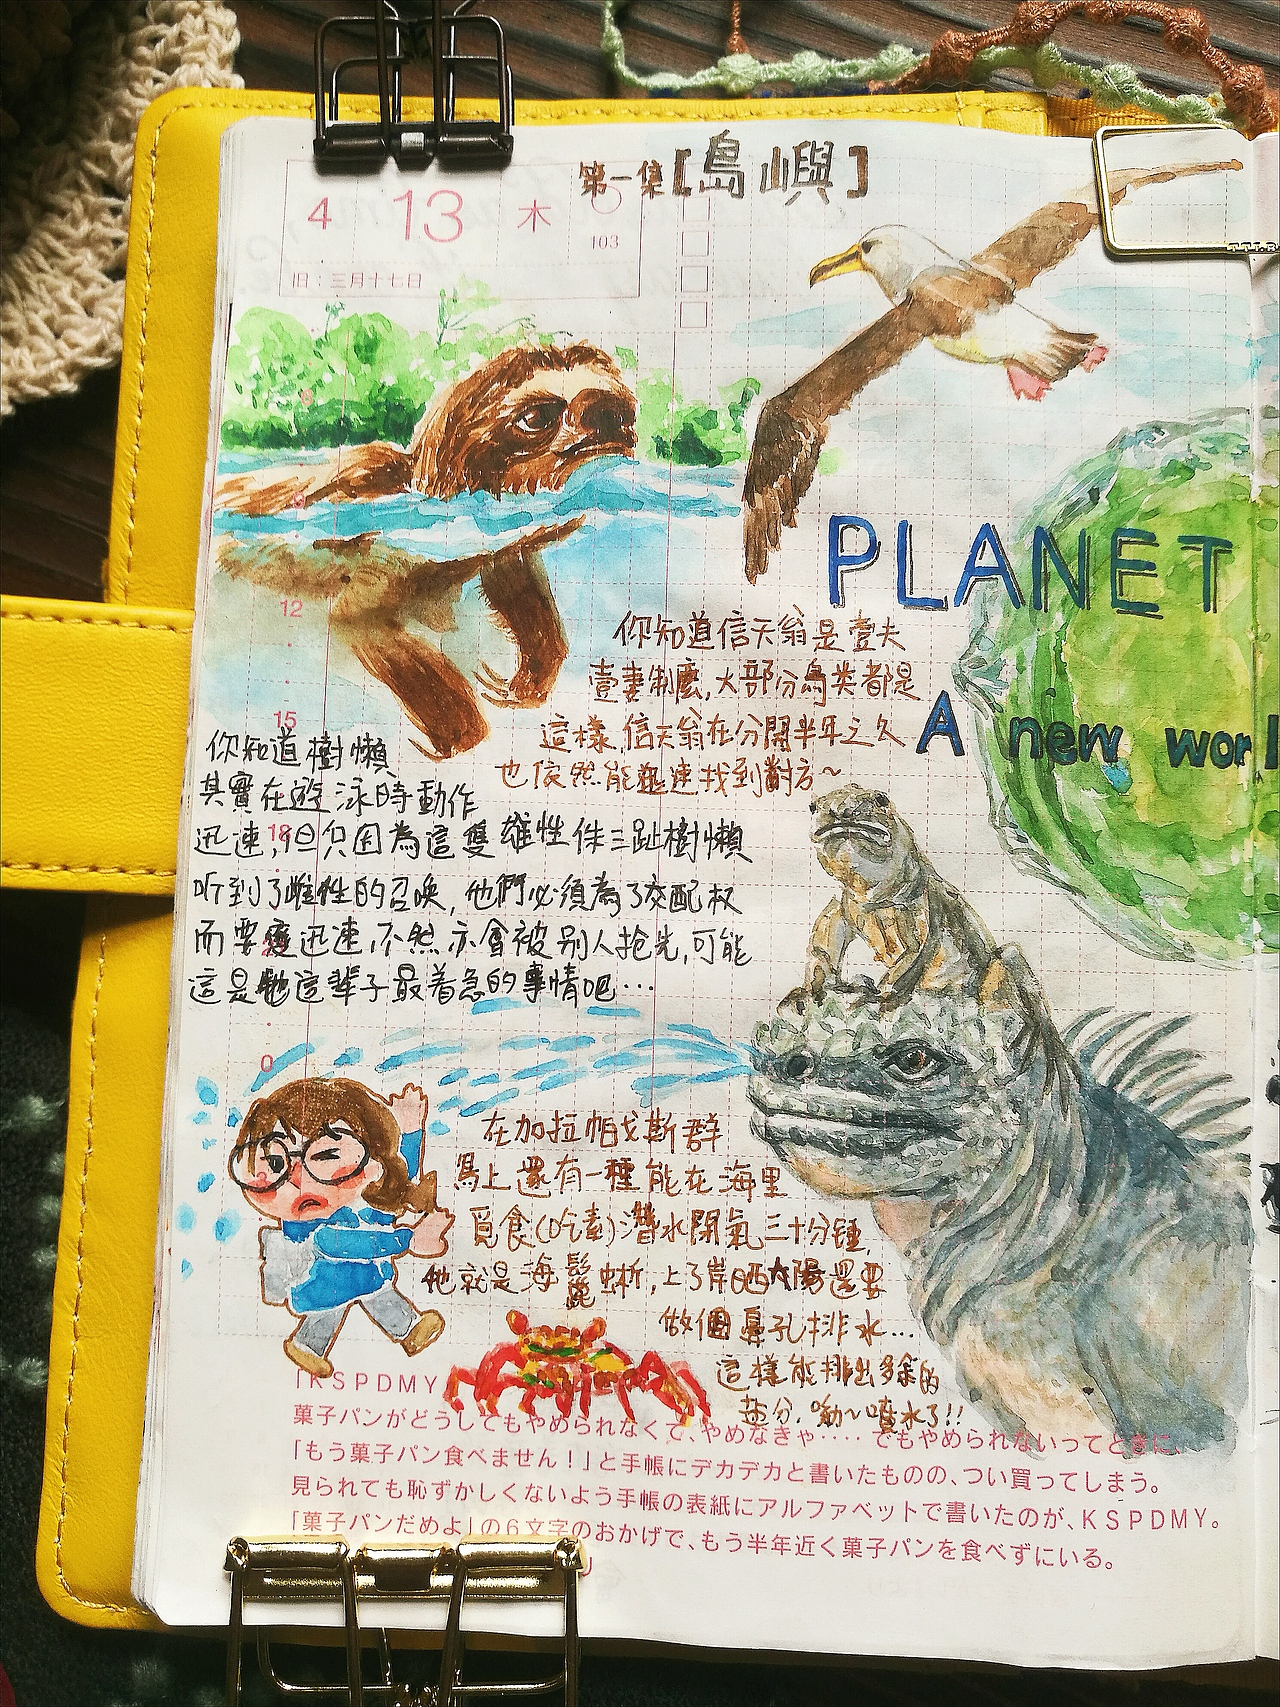 第一集【島嶼】
4 13 木
103
旧：三月十七日
9
12
PLANET
你知道信天翁是壹夫
壹妻制麽，大部分鳥类都是
這樣，信天翁在分開半年之久
也依然能迅速找到對方～
A new worl
15
你知道樹懶
其實在遊泳時動作
迅速，但只因為這隻雄性侏三趾樹懶
18
听到了雌性的召唤，他們必須為了交配权
而要變迅速，不然亦會被别人抢先，可能
這是牠這輩子最着急的事情吧…
0
在加拉帕戈斯群
島上還有一種能在海里
覓食（吃素）潛水閉氣三十分鍾，
他就是海鬣蜥，上了岸晒太陽還要
做個鼻孔排水…
這樣能排出多余的
盐分，呦～噴水了!!
「KSPDMY
菓子パンがどうしてもやめられなくて、やめなきゃ‥‥でもやめられないってときに、
「もう菓子パン食べません！」と手帳にデカデカと書いたものの、つい買ってしまう。
見られても恥ずかしくないよう手帳の表紙にアルファベットで書いたのが、KSPDMY。
「菓子パンだめよ」の6文字のおかげで、もう半年近く菓子パンを食べずにいる。